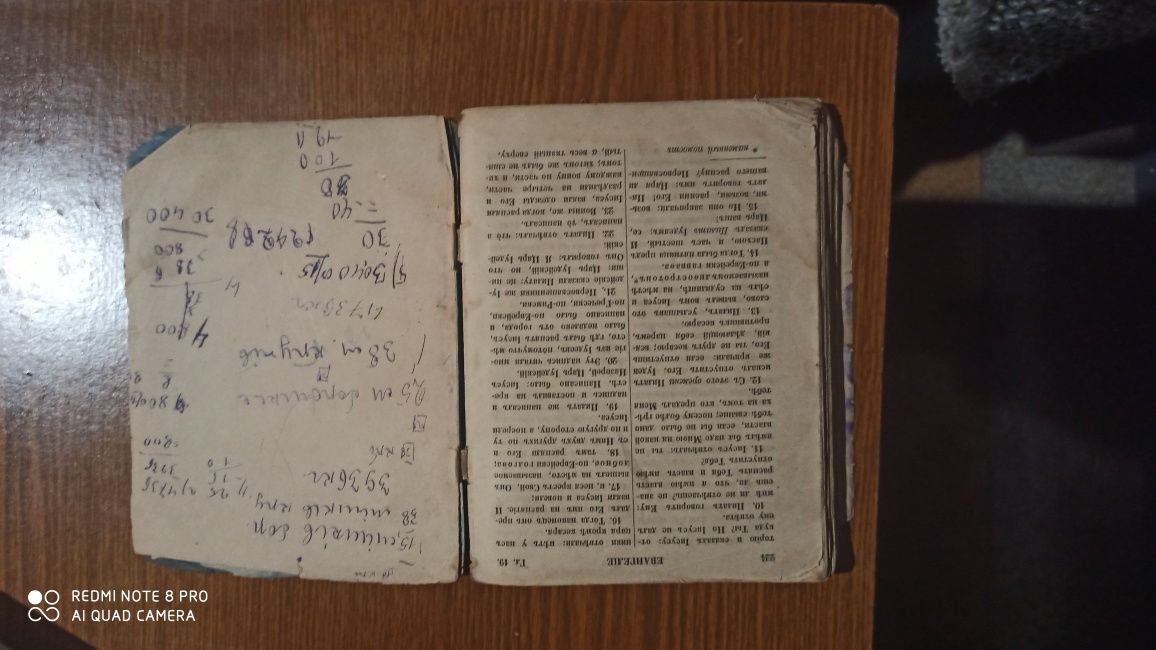 224 ЕВАНГЕЛІЕ Гл. 19.
торію и сказалъ Іисусу: от-
куда Ты? Но Іисусъ не далъ
ему отвѣта.
10. Пилатъ говоритъ Ему:
мнѣ ли не отвѣчаешь? не зна-
ешь ли, что я имѣю власть
распять Тебя и власть имѣю
отпустить Тебя?
11. Іисусъ отвѣчалъ: ты не
имѣлъ бы надо Мною никакой
власти, если бы не было дано
тебѣ свыше; посему болѣе грѣ-
ха на томъ, кто предалъ Меня
тебѣ.
12. Съ этого времени Пилатъ
искалъ отпустить Его. Іудеи
же кричали: если отпустишь
Его, ты не другъ кесарю; вся-
кій, дѣлающій себя царемъ,
противникъ кесарю.
13. Пилатъ, услышавъ это
слово, вывелъ вонъ Іисуса и
сѣлъ на судилищѣ, на мѣстѣ
называемомъ лиѳостротонъ*,
а по-Еврейски гаввава.
14. Тогда была пятница предъ
Пасхою, и часъ шестый. И
сказалъ Пилатъ Іудеямъ: се,
Царь вашъ!
15. Но они закричали: возь-
ми, возьми, распни Его! Пи-
латъ говоритъ имъ: Царя ли
вашего распну? Первосвящен-
* каменный помостъ
ники отвѣчали: нѣтъ у насъ
царя кромѣ кесаря.
16. Тогда наконецъ онъ пре-
далъ Его имъ на распятіе. И
взяли Іисуса и повели.
17. И, неся крестъ Свой, Онъ
вышелъ на мѣсто, называемое
лобное, по-Еврейски голгоѳа;
18. тамъ распяли Его и
съ Нимъ двухъ другихъ по ту
и по другую сторону, а посреди
Іисуса.
19. Пилатъ же написалъ и
надпись и поставилъ на кре-
стѣ. Написано было: Іисусъ
Назорей, Царь Іудейскій.
20. Эту надпись читали мно-
гіе изъ Іудеевъ, потомучто мѣ-
сто, гдѣ былъ распятъ Іисусъ,
было недалеко отъ города, и
написано было по-Еврейски,
по-Гречески, по-Римски.
21. Первосвященники же Іу-
дейскіе сказали Пилату: не пи-
ши: Царь Іудейскій, но что
Онъ говорилъ: Я Царь Іудей-
скій.
22. Пилатъ отвѣчалъ: что я
написалъ, то написалъ.
23. Воины же, когда распяли
Іисуса, взяли одежды Его и
раздѣлили на четыре части,
каждому воину по части, и хи-
тонъ; хитонъ же былъ не сши-
тый, а весь тканый сверху.
15 мішків
38 мішків
3936 кг
25 м
38 м
4736 кг
4800
30 400
30
40
100
REDMI NOTE 8 PRO
AI QUAD CAMERA